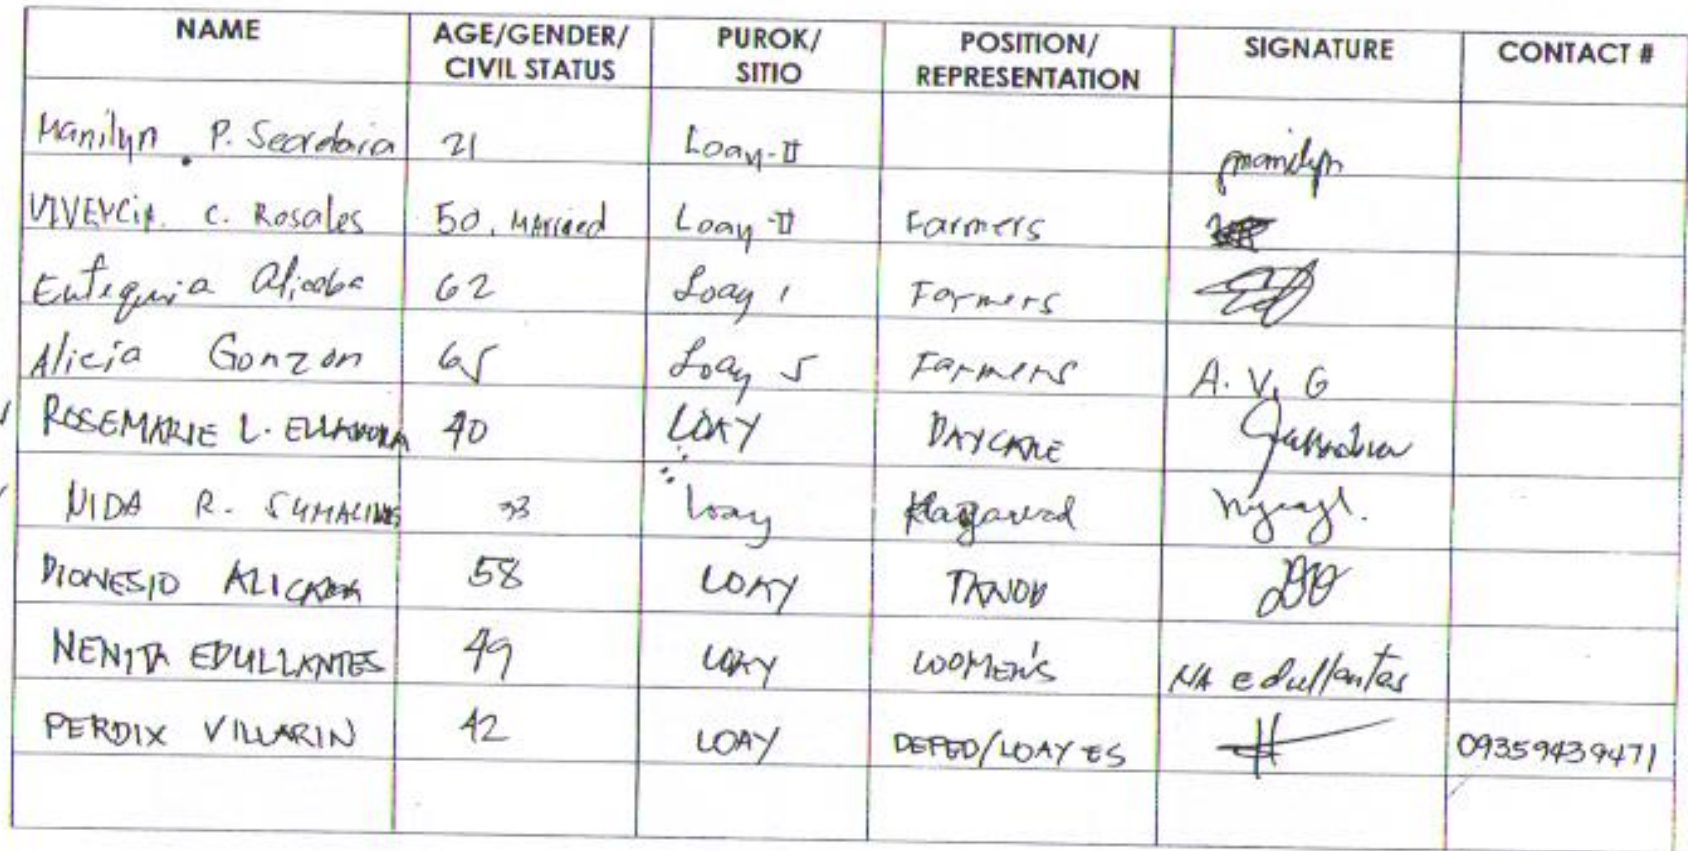 NAME AGE/GENDER/ CIVIL STATUS PUROK/ SITIO POSITION/ REPRESENTATION SIGNATURE CONTACT #
Manilyn P. 21 Loay-II
C. Rosales 50, Married Loay-II Farmers
62 Loay 1 Farmers
Alicia Gonzon 65 Loay 5 Farmers A. V. G
ROSEMARIE L. 40 LOAY DAYCARE
NIDA R. 33 Loay Kagawad
DIONESIO 58 LOAY TANOD
NENITA EDULLANTES 49 LOAY WOMEN'S NA edullantes
PERDIX VILLARIN 42 LOAY DEPED/LOAY ES 09359439471